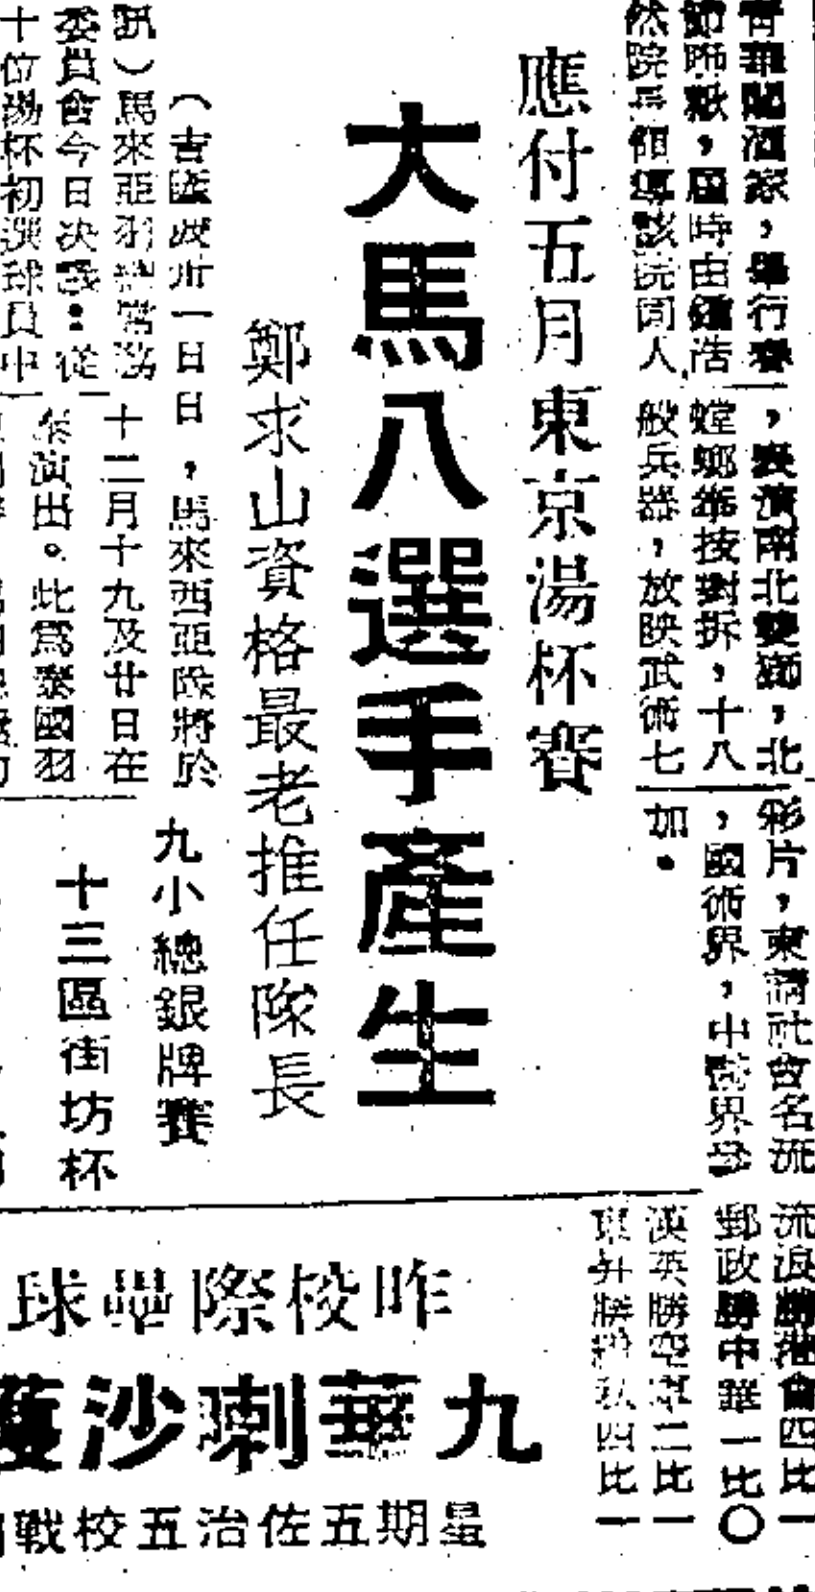 ，舉行春
節聯歡，屆時由
院長領導該院同人
，表演南北雙獅，北
螳螂拳按對拆，十八
般兵器，放映武術七
彩片，柬請社會名流
，國術界，中醫界參
加。
應付五月東京湯杯賽
大馬八選手產生
鄭求山資格最老推任隊長
（吉隆坡卅一日
訊）馬來亞羽總常務
委員會今日決議：從
十位湯杯初選球員中
日，馬來西亞隊將於
十二月十九及廿日在
演出。此爲泰國羽
九小總銀牌賽
十三區街坊杯
流浪勝港會四比一
郵政勝中華一比〇
漢英勝空軍二比一
四比一
昨校際壘球
九華喇沙獲
星期五佐治五校戰